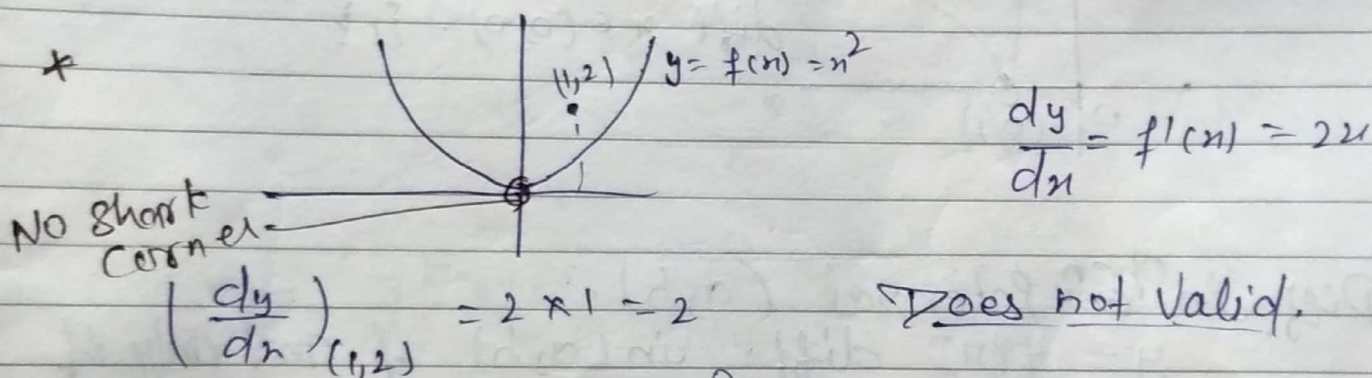 *
(1,2)
y = f(x) = x²
dy/dx = f'(x) = 2x
No Shark
Corner
(dy/dx)(1,2) = 2 × 1 = 2
Does not Valid.